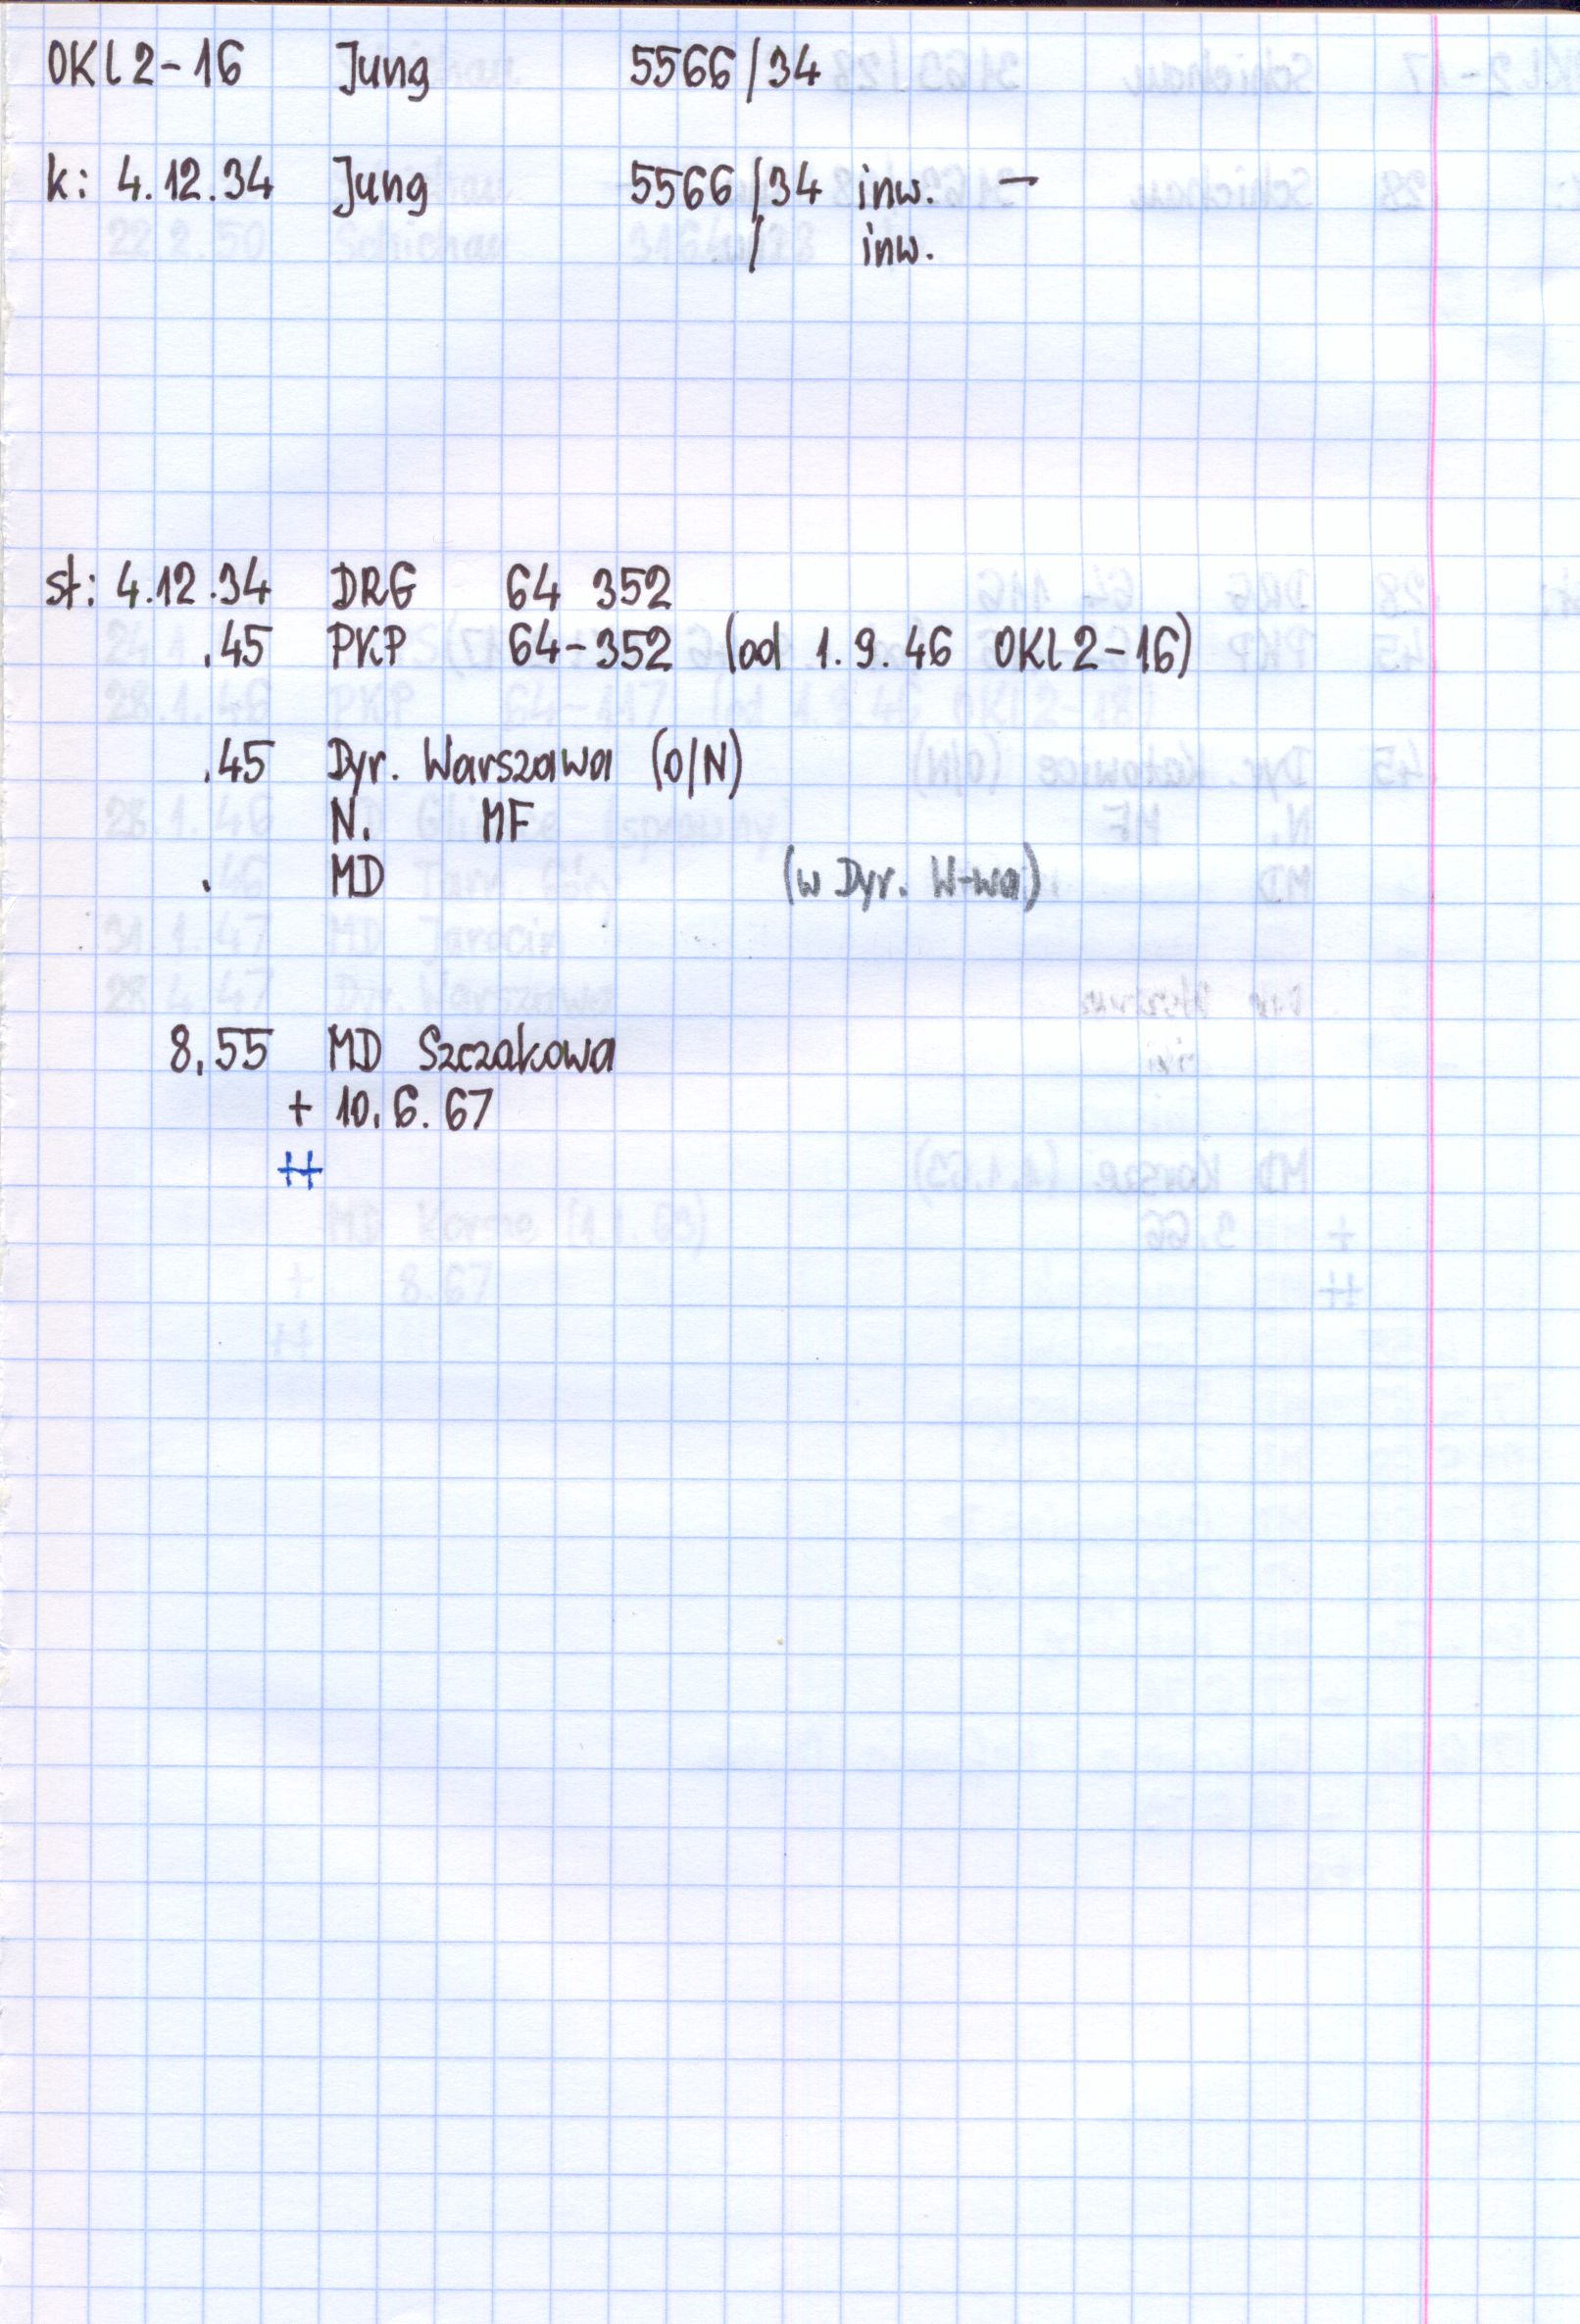 OKl2-16 Jung 5566/34
k: 4.12.34 Jung 5566/34 inw. —
/ inw.
st: 4.12.34 DRG 64 352
.45 PKP 64-352 (od 1.9.46 OKl2-16)
.45 Dyr. Warszawa (O/N)
N. MF
. MD (w Dyr. W-wa)
8.55 MD Szczakowa
+ 10.6.67
++